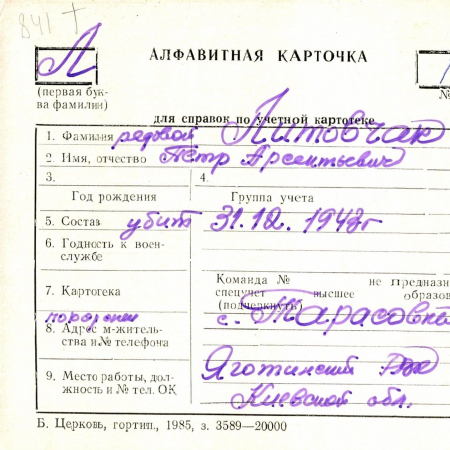 841 †
Л
АЛФАВИТНАЯ КАРТОЧКА
(первая бук-
ва фамилии)
№
для справок по учетной картотеке
1. Фамилия рядовой Литовчак
2. Имя, отчество Пётр Арсентьевич
3.
4.
Год рождения
Группа учета
5. Состав убит 31.12.1943г
6. Годность к воен-
службе
Команда № не предназна
7. Картотека
спецучет высшее образов
(подчеркнуть)
похоронен с. Тарасовка
8. Адрес м-житель-
ства и № телефона
Яготинский
9. Место работы, дол-
жность и № тел. ОК
Киевской обл.
Б. Церковь, гортип., 1985, з. 3589—20000